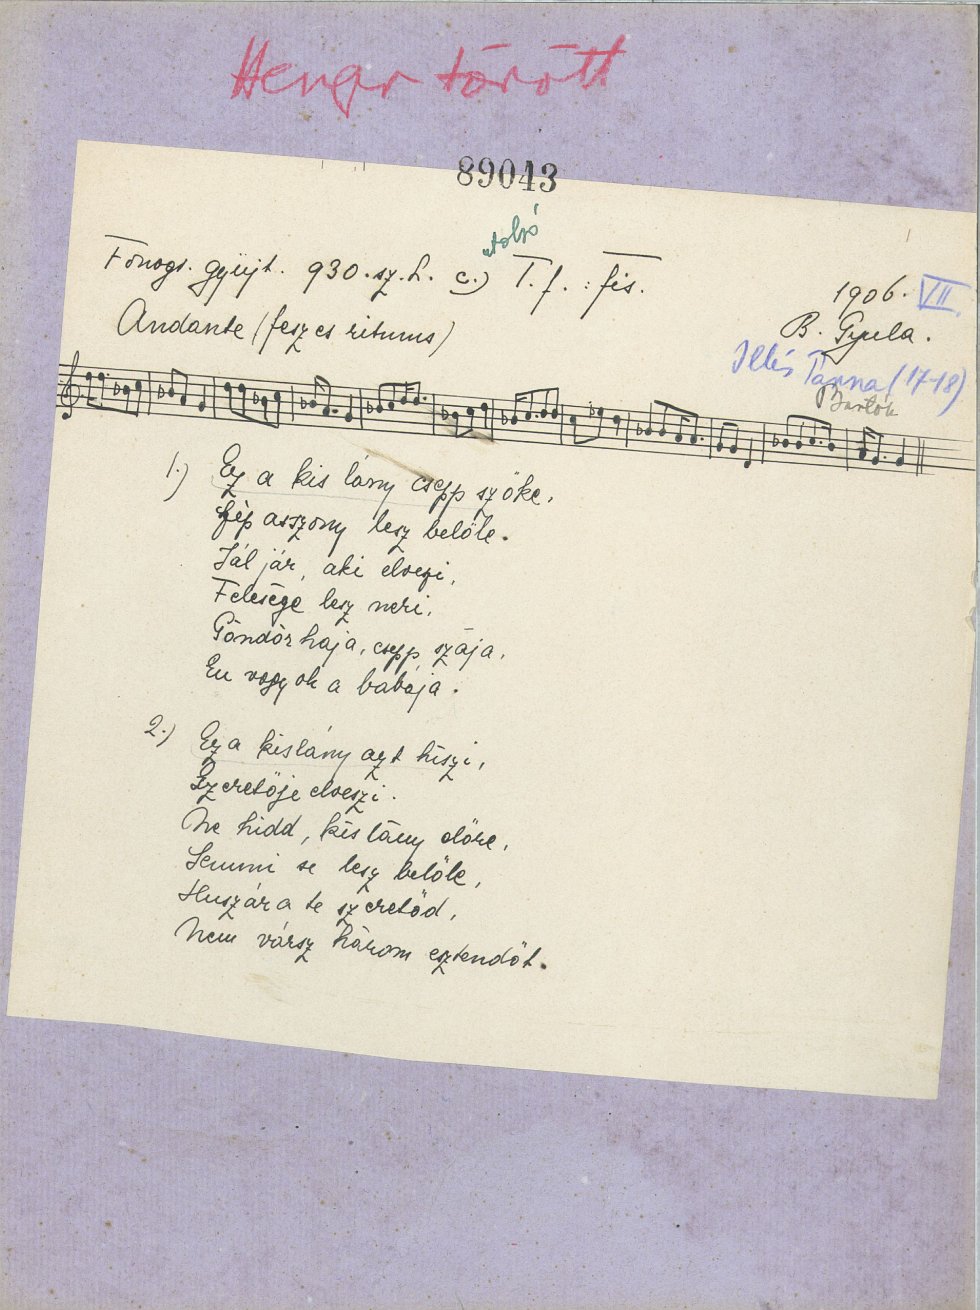 Henger törött
89043
utolsó
Fonogr. gyüjt. 930.sz.h. c.) T.f.: fis.
1906. VII.
Andante (feszes ritmus)
B. Gyula.
Illés Panna (17-18)
Bartók
1.) Ez a kis lány csepp szőke,
Szép asszony lesz belőle.
Jál jár, aki elveszi,
Felesége lesz neki,
Göndör haja, csepp szája,
Én vagyok a babája.
2.) Ez a kislány azt hiszi,
Szeretője elveszi.
Ne hidd, kis lány előre,
Semmi se lesz belőle,
Huszár a te szeretőd,
Nem vársz három esztendőt.